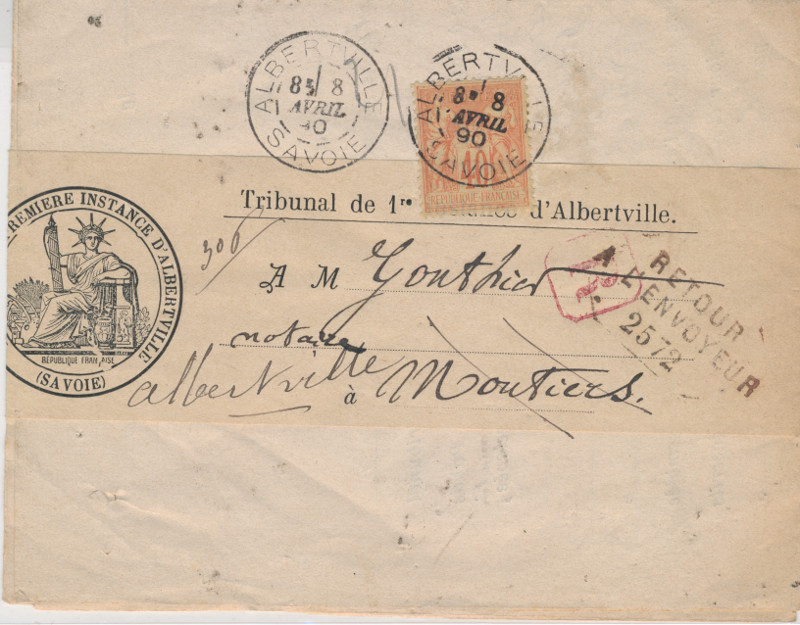 ALBERTVILLE
8 8
AVRIL
90
SAVOIE
ALBERTVILLE
8 8
AVRIL
90
SAVOIE
40
REPUBLIQUE FRANÇAISE
Tribunal de 1re d'Albertville.
PREMIERE INSTANCE D'ALBERTVILLE
RÉPUBLIQUE FRANÇAISE
(SAVOIE)
306
A M Gonthier
notaire
albertville à Moutiers.
R
RETOUR
A L'ENVOYEUR
2572